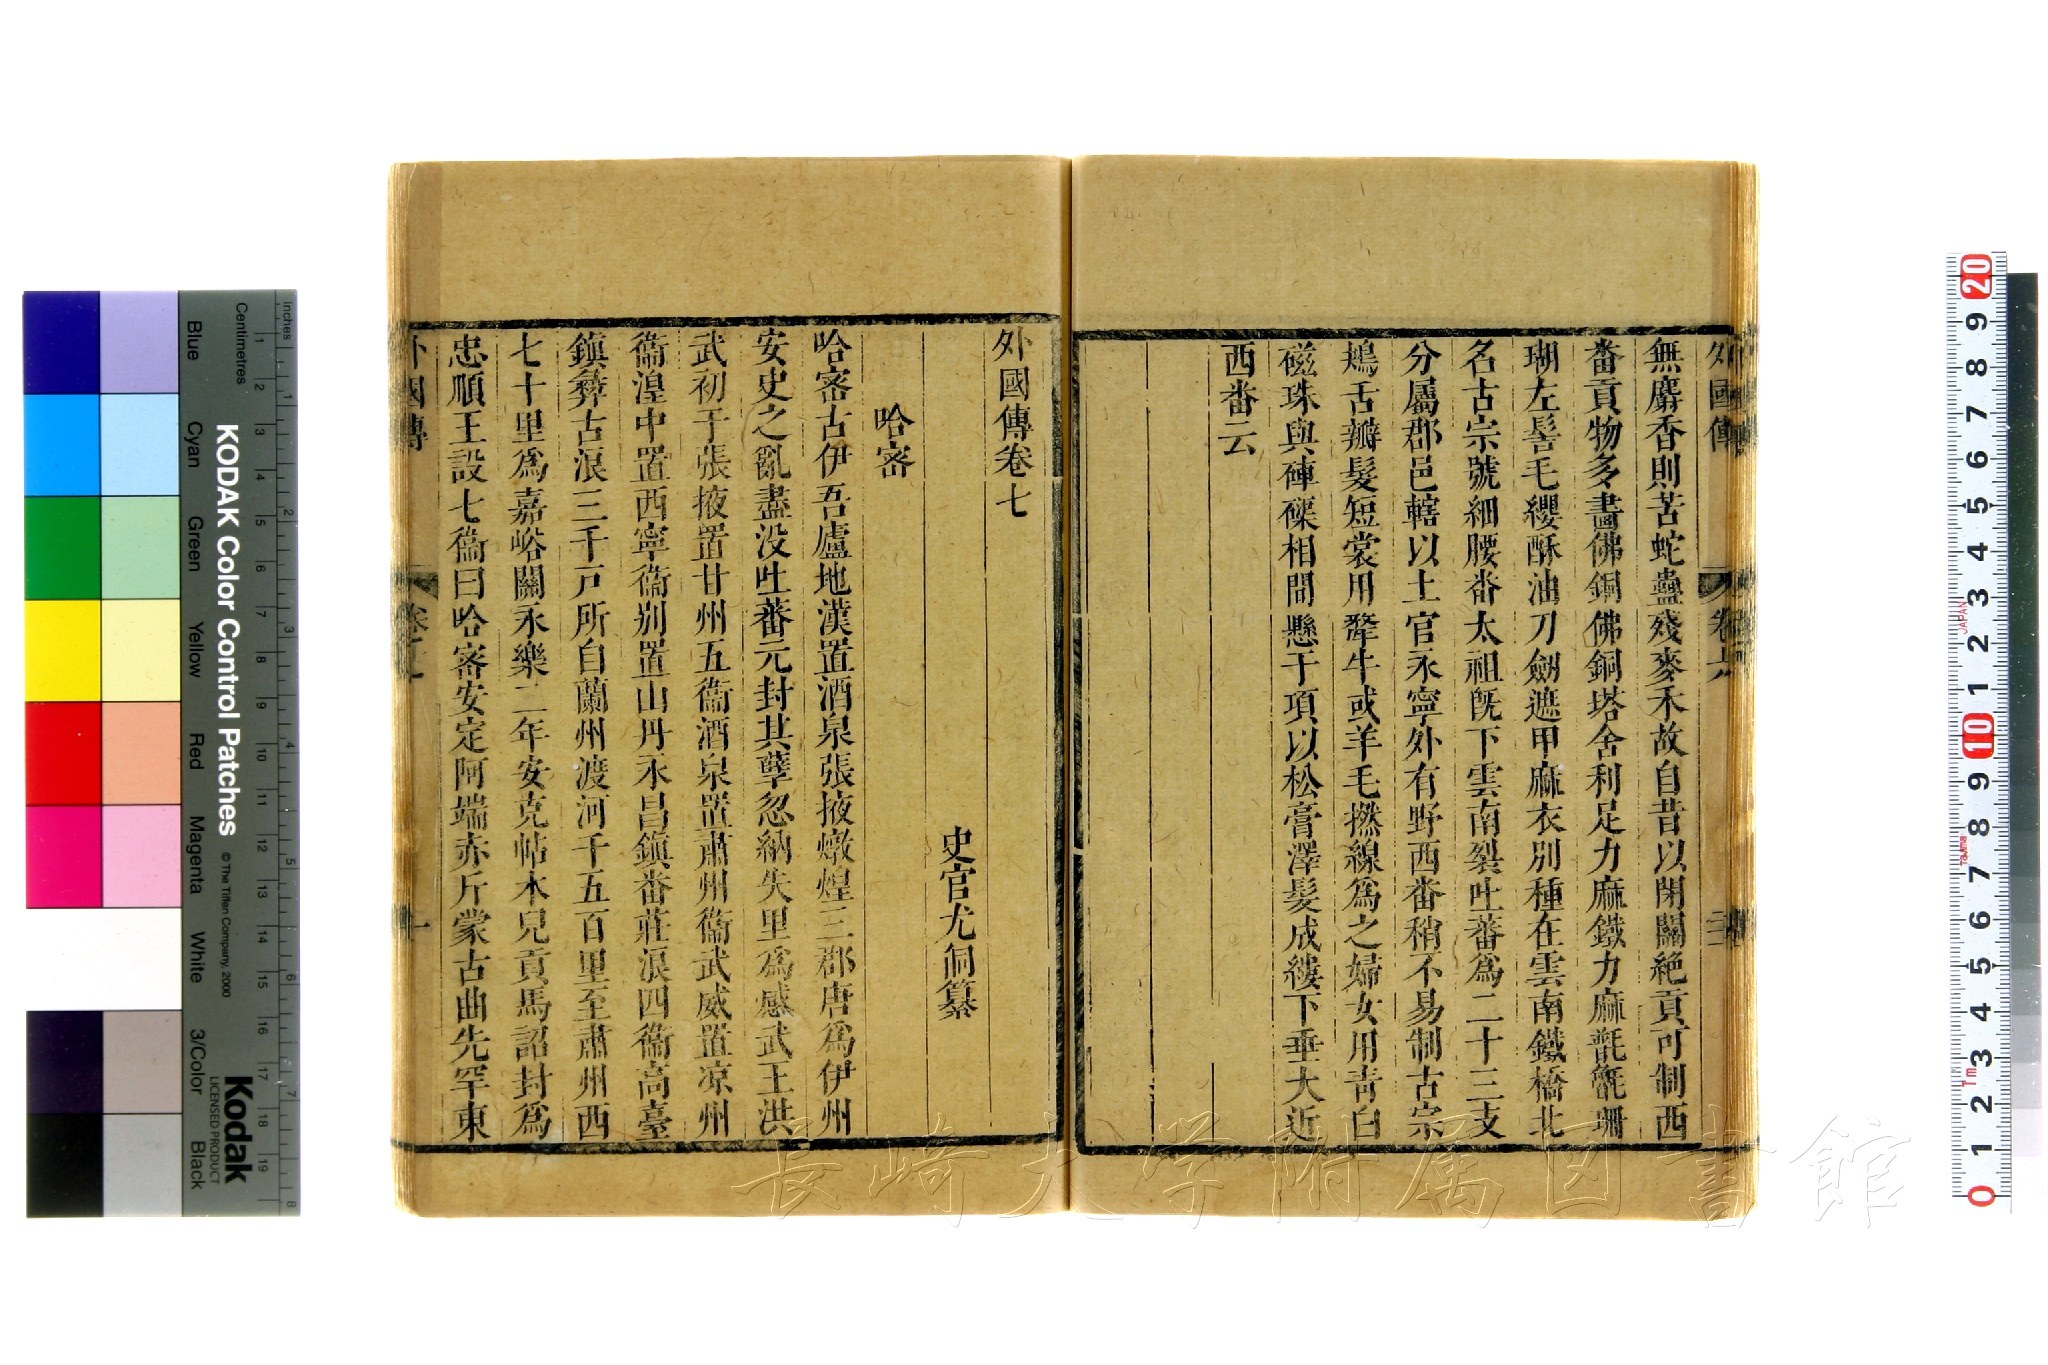 外國傳
卷六
無麝香則苦蛇蠱殘麥禾故自昔以閉關絶貢可制西
番貢物多畵佛銅佛銅塔舍利足力麻鐵力麻氆氌珊
瑚左髻毛纓酥油刀劒遮甲麻衣別種在雲南鐵橋北
名古宗號細腰番太祖旣下雲南裂吐蕃爲二十三支
分屬郡邑轄以土官永寧外有野西番稍不易制古宗
鴂舌辮髮短裳用犛牛或羊毛撚線爲之婦女用靑白
磁珠與硨磲相間懸于項以松膏澤髮成縷下垂大近
西番云
外國傳卷七
史官尤侗纂
哈密
哈密古伊吾廬地漢置酒泉張掖燉煌三郡唐爲伊州
安史之亂盡没吐蕃元封其孽忽納失里爲威武王洪
武初于張掖置甘州五衞酒泉置肅州衞武威置凉州
衞湟中置西寧衞別置山丹永昌鎭番莊浪四衞高臺
鎭彝古浪三千戸所自蘭州渡河千五百里至肅州西
七十里爲嘉峪關永樂二年安克帖木兒貢馬詔封爲
忠順王設七衞曰哈密安定阿端赤斤蒙古曲先罕東
外國傳
卷七
一
KODAK Color Control Patches
© The Tiffen Company, 2000
Kodak
LICENSED PRODUCT
Inches
Centimetres
Blue
Cyan
Green
Yellow
Red
Magenta
White
3/Color
Black
長崎大学附属図書館
JAPAN
Tajima